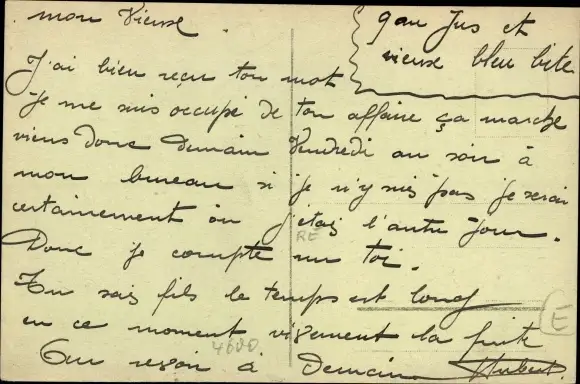 mon Vieux
J'ai bien reçu ton mot
Je me suis occupé de ton affaire ça marche
viens Donc Demain Vendredi au soir à
mon bureau si je n'y suis pas je serai
certainement où j'étais l'autre Jour.
Donc je compte sur toi.
Tu sais fils le temps est long
en ce moment vivement la fuite
Au revoir à Demain Hubert.
Jus et
vieux bleu bite
RE
4600
E